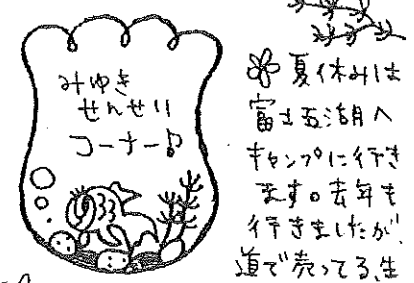 みゆき
せんせい
コーナー♪
夏休みは
富士五湖へ
キャンプに行き
ます。去年も
行きましたが、
道で売ってる、生